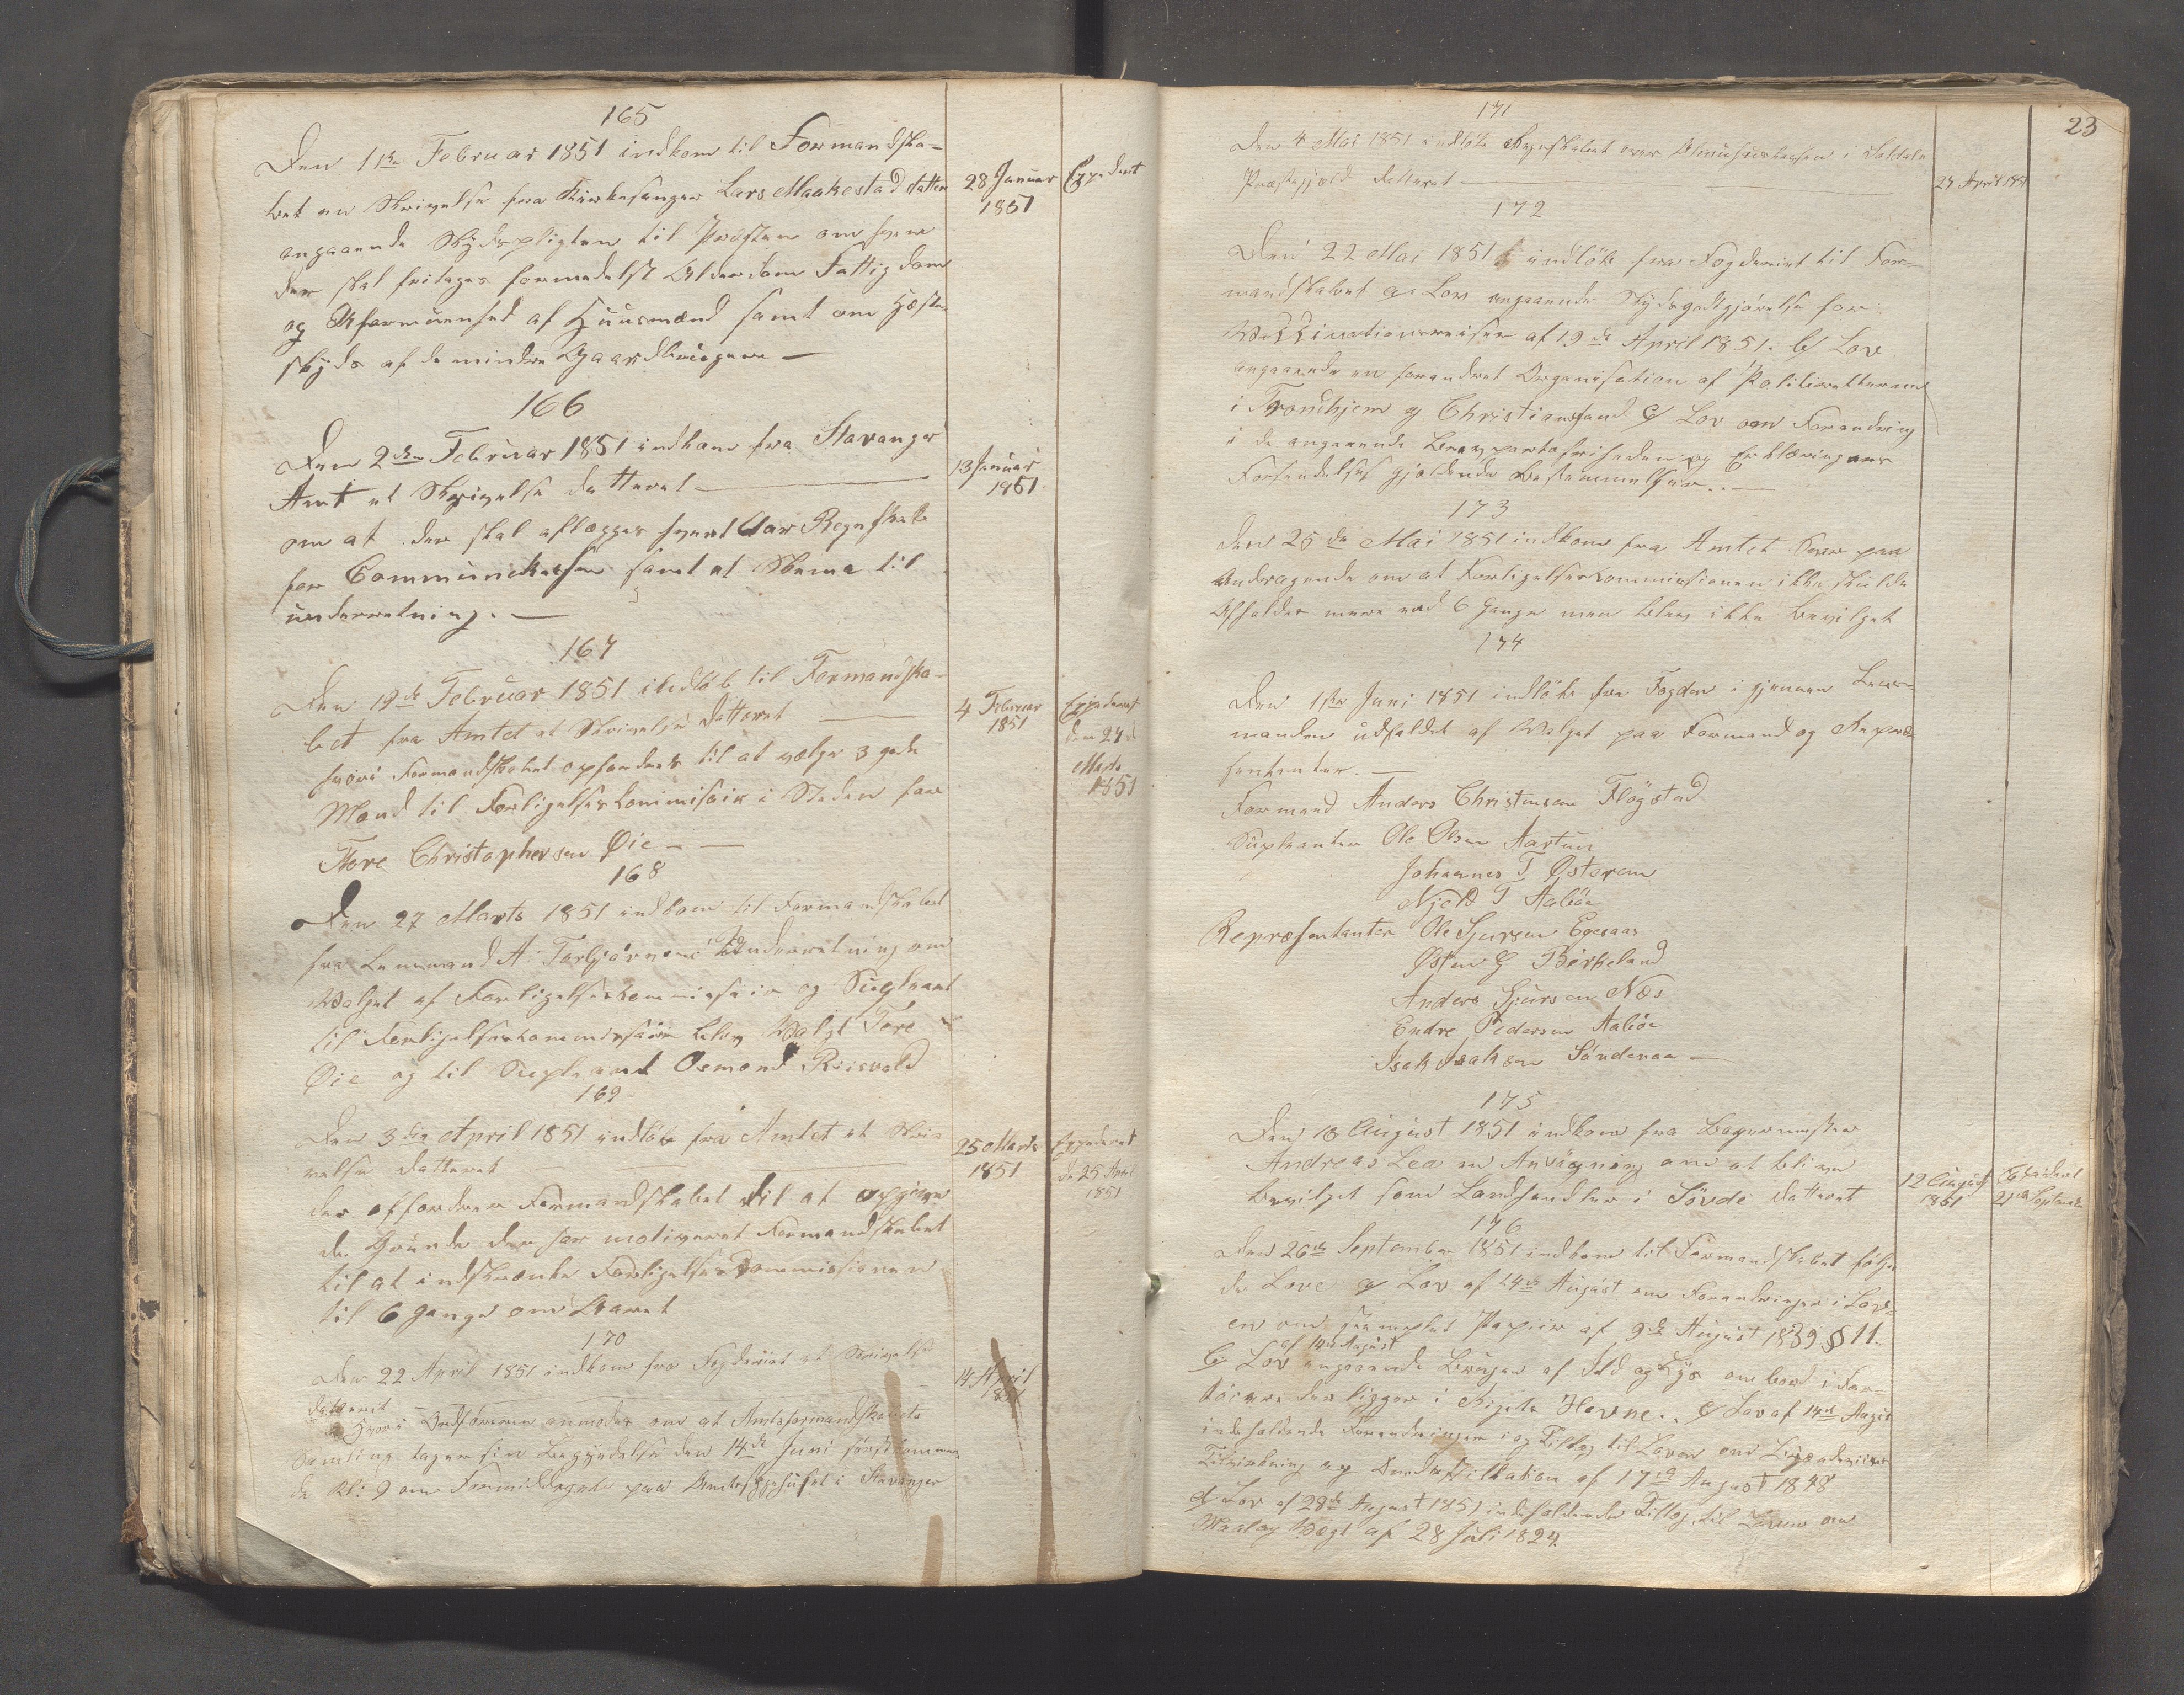 165
Den 1ste Februar 1851 indkom til Formandska-
bet en Skrivelse fra Kirkesanger Lars Maakestad datteret
28 Januar
1851
Expederet
angaaende Skydspligten til Præsten om hvem
der skal fritages formedelst Alderdom Fattigdom
og Uformuenhed af Huusmænd samt om Heste-
skyds af de mindre Gaardbrugere —
166
Den 2den Februar 1851 indkom fra Stavanger
Amt et Skrivelse datteret —
13 Januar
1851
om at der skal aflægges hvert Aar Regnskab
for Communekassen samt et Skema til
underretning. —
167
Den 19de Februar 1851 indløb til Formandska-
bet fra Amtet et Skrivelse datteret —
4 Februar
1851
Expederet
den 27de
Marts
1851
hvori Formandskabet opfordres til at vælge 3 gode
Mænd til Forligelseskommisair i Steden for
Tore Christophersen Øie — —
168
Den 27 Marts 1851 indkom til Formandskabet
fra Lensmand A. Torbjørnsen Underretning om
Valget af Forligelseskommissair og Supleant
til Forligelseskommissair blev Valgt Tore
Øie og til Supleant Osmond Riisvold
169
Den 3die April 1851 indløb fra Amtet et Skri-
velse datteret —
25 Marts
1851
Expederet
de 25 April
1851
der opfordrer Formandskabet til at opgive
de Grunde der har motiveret Formandskabet
til at indskrænke Forligelseskommissionen
til 6 gange om Aaret
170
Den 22 April 1851 indkom fra Fogderiet et Skrivelse
datteret —
14 April
1851
Hvori Ordføreren anmodes om at Amtsformandskabets
Samling tager sin Begyndelse den 14de Juni førstkommen-
de Kl: 9 om Formiddagen paa i Stavanger
23
171
Den 4 Mai 1851 indløb Regnskabet over i
Præstegjeld datteret —
27 April 1851
172
Den 22 Mai 1851 indløb fra Fogderiet til For-
mandskabet a Lov angaaende Skydsgodtgjørelse for
Vaccinationsreiser af 19de April 1851. b/ Lov
angaaende en forandret Organisation af Politiretterne
i Trondhjem og Christiansand c/ Lov om Forandring
i de angaaende og Erklæringers
Forsendelse gjældende Bestemmelser. . —
173
Den 25de Mai 1851 indkom fra Amtet Svar paa
Andragende om at Forligelseskommissionen ikke skulde
Afholdes mere end 6 Gange men blev ikke bevilget
174
Den 1ste Juni 1851 indløb fra Fogden i gjennem Lens-
manden udfaldet af Valget paa Formænd og Repræ-
sentanter. —
Formænd Anders Christensen Fløgstad
Supleanter Ole Olsen Aartun
Johannes T Østerem
Njeld T Aabøe
Repræsentanter Ole Sjursen Egesaas
Østen G Birkeland
Anders Sjursen Næs
Endre Pedersen Aabøe
Isak Isaksen Søndenaa —
175
Den 13 August 1851 indkom fra
Andreas Lea en Ansøgning om at blive
bevilget som Landhandler i Søvde datteret
12 August
1851
Expederet
21de September
176
Den 26de September 1851 indkom til Formandskabet følgen-
de Love a/ Lov af 14de August om Forandringer i Lov-
en om stemplet Papiir af 9de August 1839 § 11.
af 14de August
b/ Lov angaaende Brugen af Ild og Lys ombord i Far-
tøiere der ligger i Rigets Havne. . c/ Lov af 14de August
indeholdende Forandringer i og Tillæg til Loven om Brændeviins
Tilvirkning og Destillation af 17de August 1848
d/ Lov af 28de August 1851 indeholdende Tillæg til Loven om
Maal og Vægt af 28 Juli 1824.